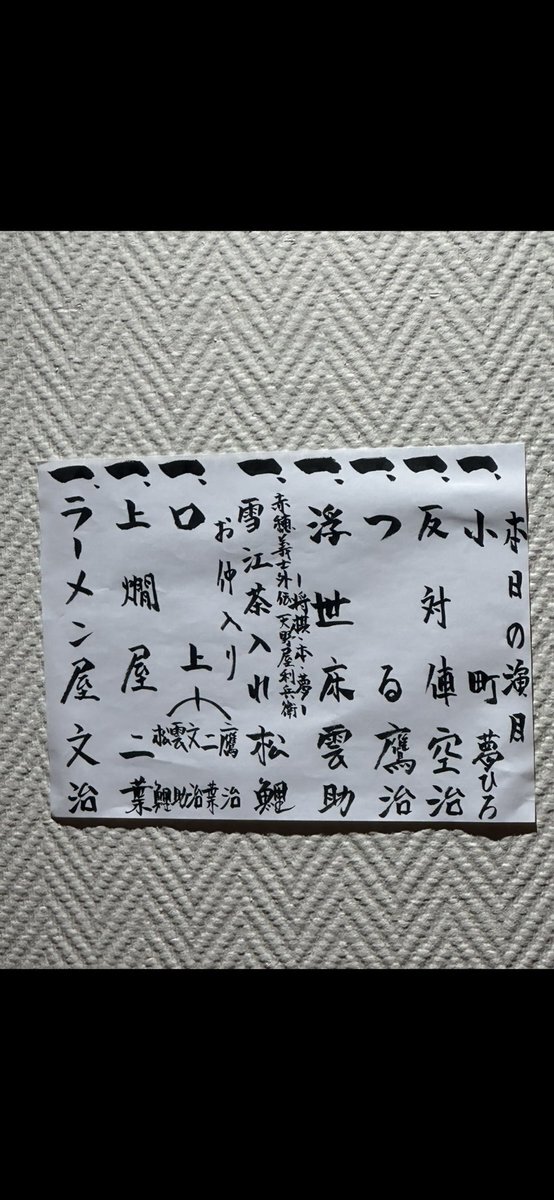 本日の演目
一、小町 夢ひろ
一、反対俥 空治
一、つる 鷹治
一、浮世床 雲助
－将棋・本・夢－
赤穂義士外伝 天野屋利兵衛
一、雪江茶入れ 松鯉
お仲入り
一、口上
鷹治
二葉
文治
雲助
松鯉
一、上燗屋 二葉
一、ラーメン屋 文治